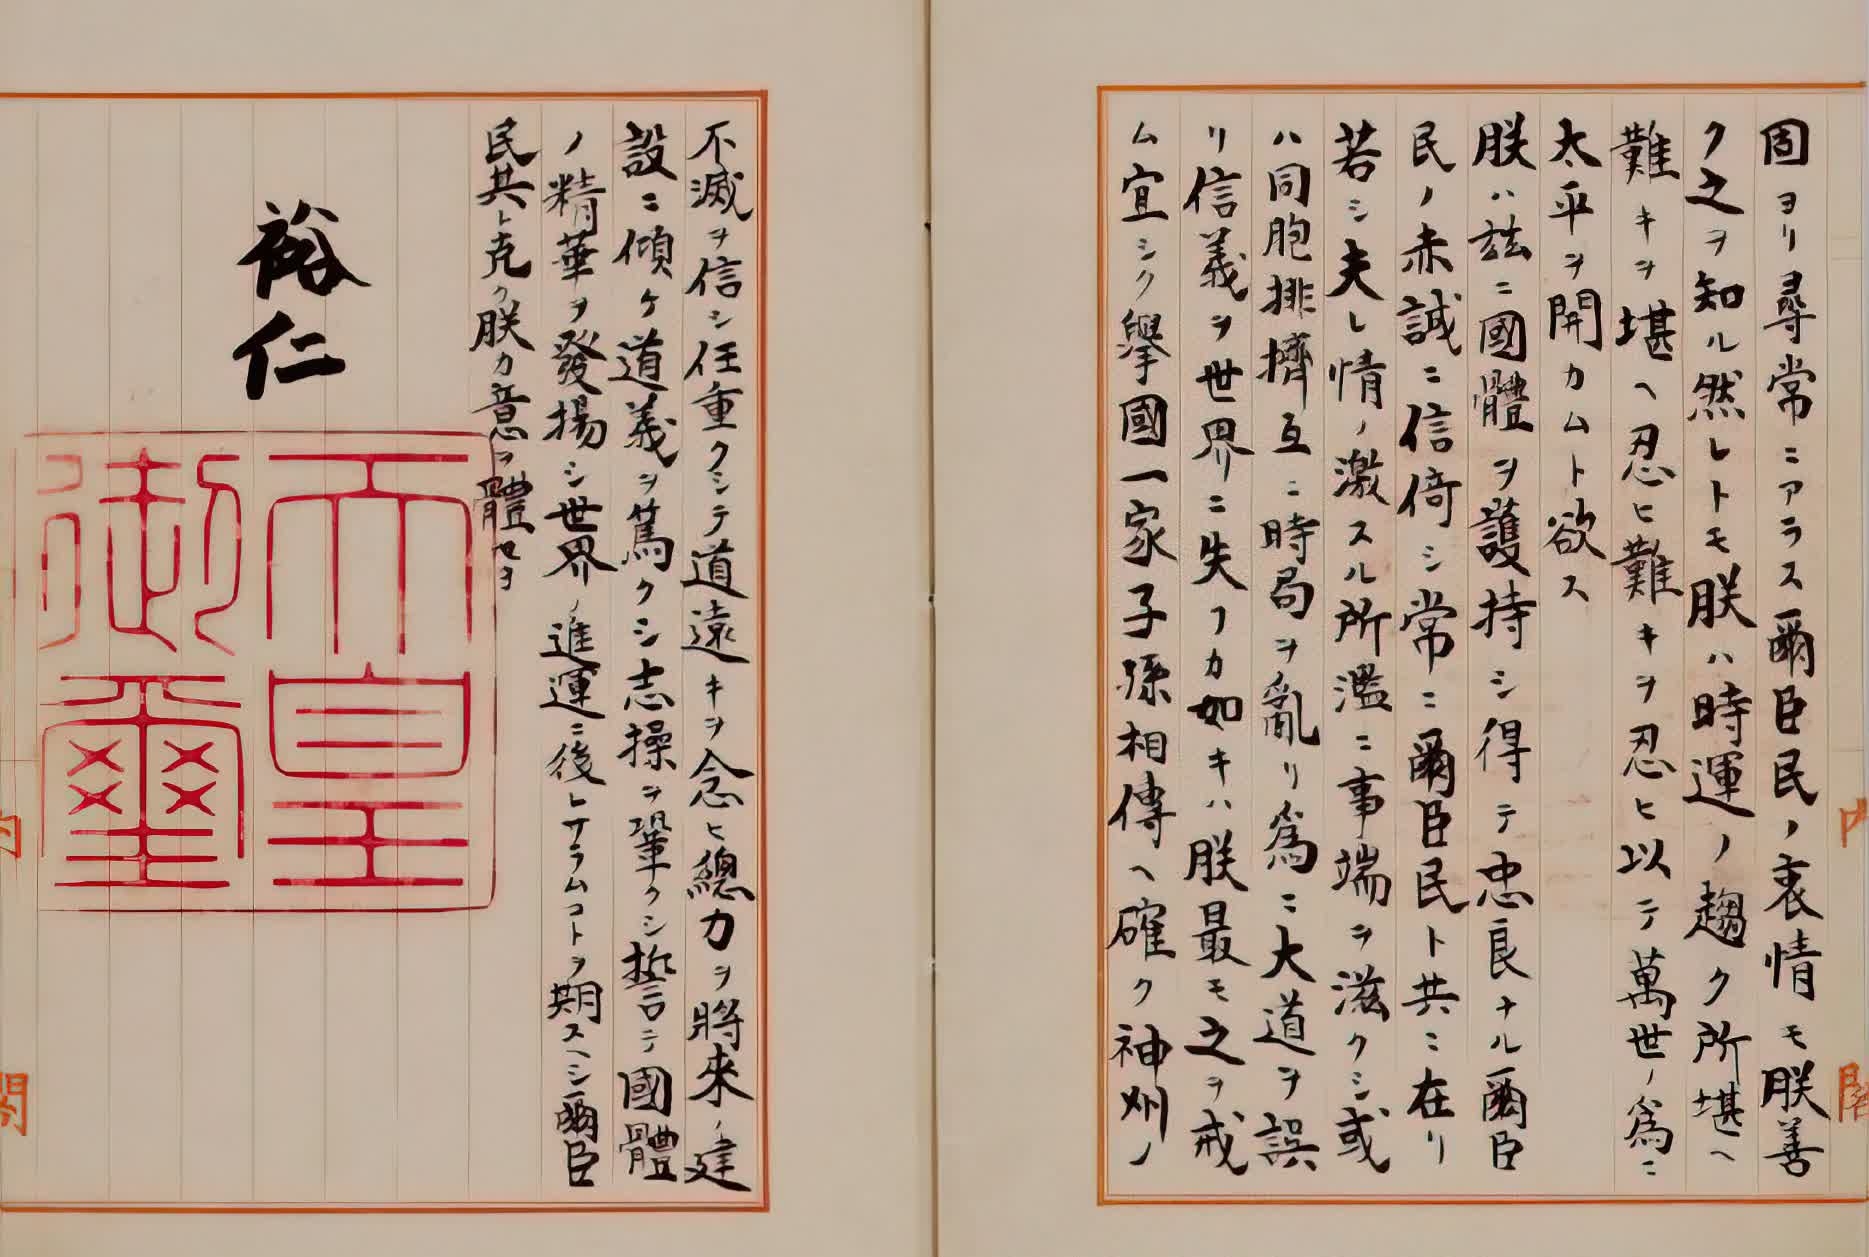 固ヨリ尋常ニアラス爾臣民ノ衷情モ朕善
ク之ヲ知ル然レトモ朕ハ時運ノ趨ク所堪ヘ
難キヲ堪ヘ忍ヒ難キヲ忍ヒ以テ萬世ノ爲ニ
太平ヲ開カムト欲ス
朕ハ玆ニ國體ヲ護持シ得テ忠良ナル爾臣
民ノ赤誠ニ信倚シ常ニ爾臣民ト共ニ在リ
若シ夫レ情ノ激スル所濫ニ事端ヲ滋クシ或
ハ同胞排擠互ニ時局ヲ亂リ爲ニ大道ヲ誤
リ信義ヲ世界ニ失フカ如キハ朕最モ之ヲ戒
ム宜シク擧國一家子孫相傳ヘ確ク神州ノ
内
閣
不滅ヲ信シ任重クシテ道遠キヲ念ヒ總力ヲ將來ノ建
設ニ傾ケ道義ヲ篤クシ志操ヲ鞏クシ誓テ國體
ノ精華ヲ發揚シ世界ノ進運ニ後レサラムコトヲ期スヘシ爾臣
民其レ克ク朕カ意ヲ體セヨ
裕仁
天皇
御璽
内
閣